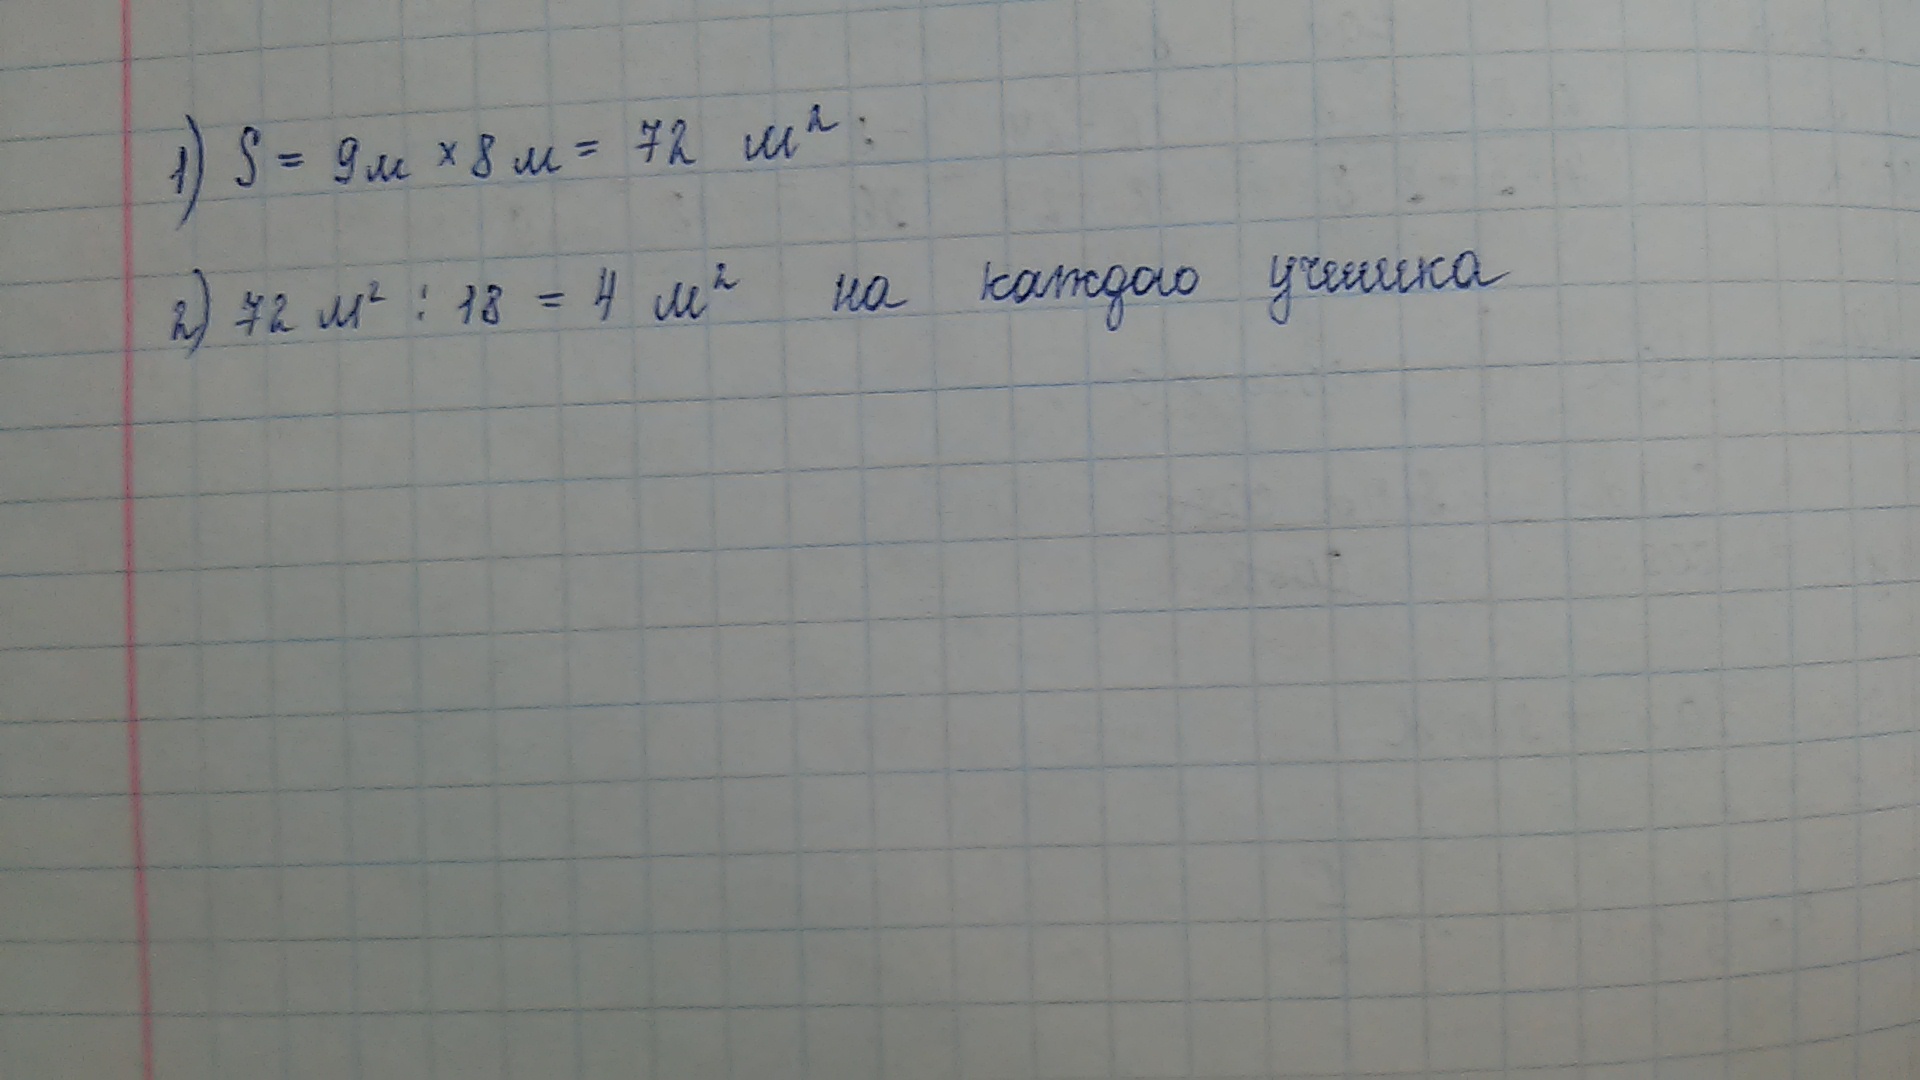 1) S = 9м × 8 м = 72 м² :
2) 72 м² : 18 = 4 м² на каждого ученика